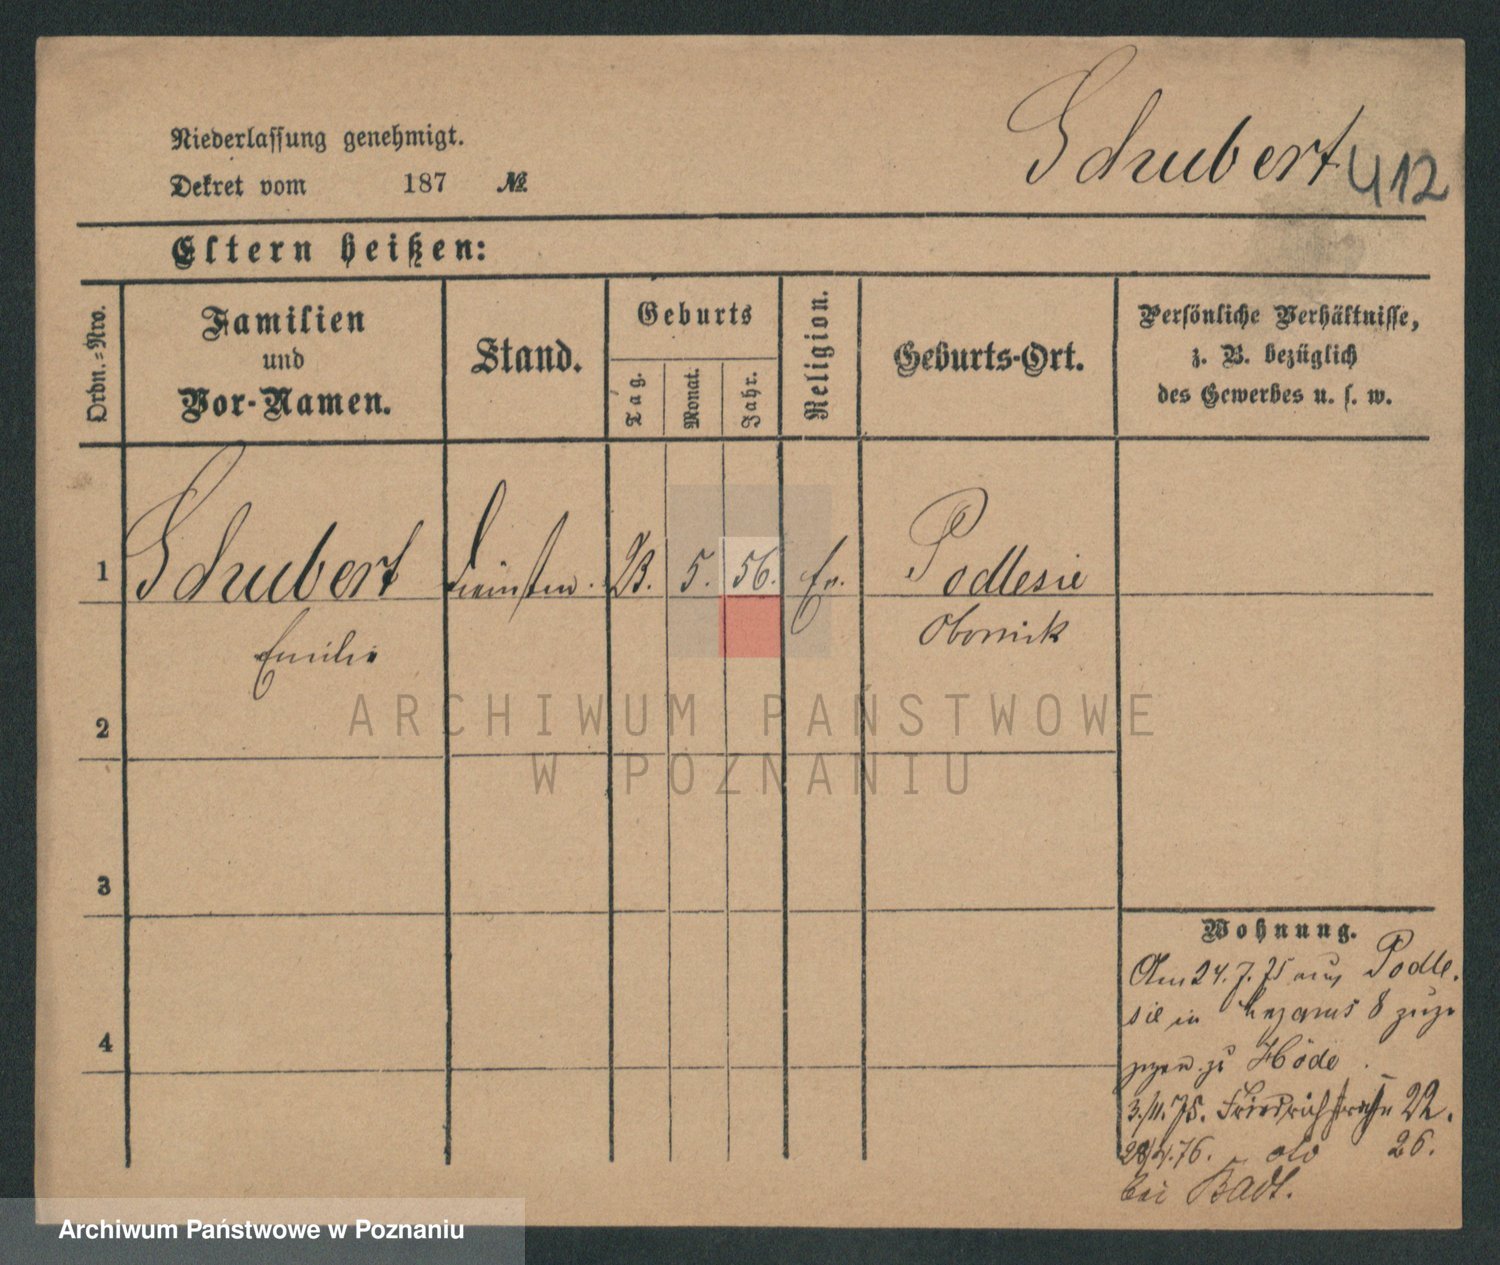 Niederlassung genehmigt.
Dekret vom 187 №
Schubert 412
Eltern heißen:
Ordn.=Nro.
Familien
und
Vor-Namen.
Stand.
Geburts
Tag.
Monat.
Jahr.
Religion.
Geburts-Ort.
Persönliche Verhältnisse,
z. B. bezüglich
des Gewerbes u. s. w.
1 Schubert 5. 56. Ev. Podlesie
Emilie Obornik
2
3
4
Wohnung.
Am 24.7.75 aus Podle-
sie in Lazarus 8 zuge
zogen zu Höde
3./11.75. Friedrichstraße 22.
76. 26.
bei Badt.
ARCHIWUM PAŃSTWOWE
W POZNANIU
Archiwum Państwowe w Poznaniu